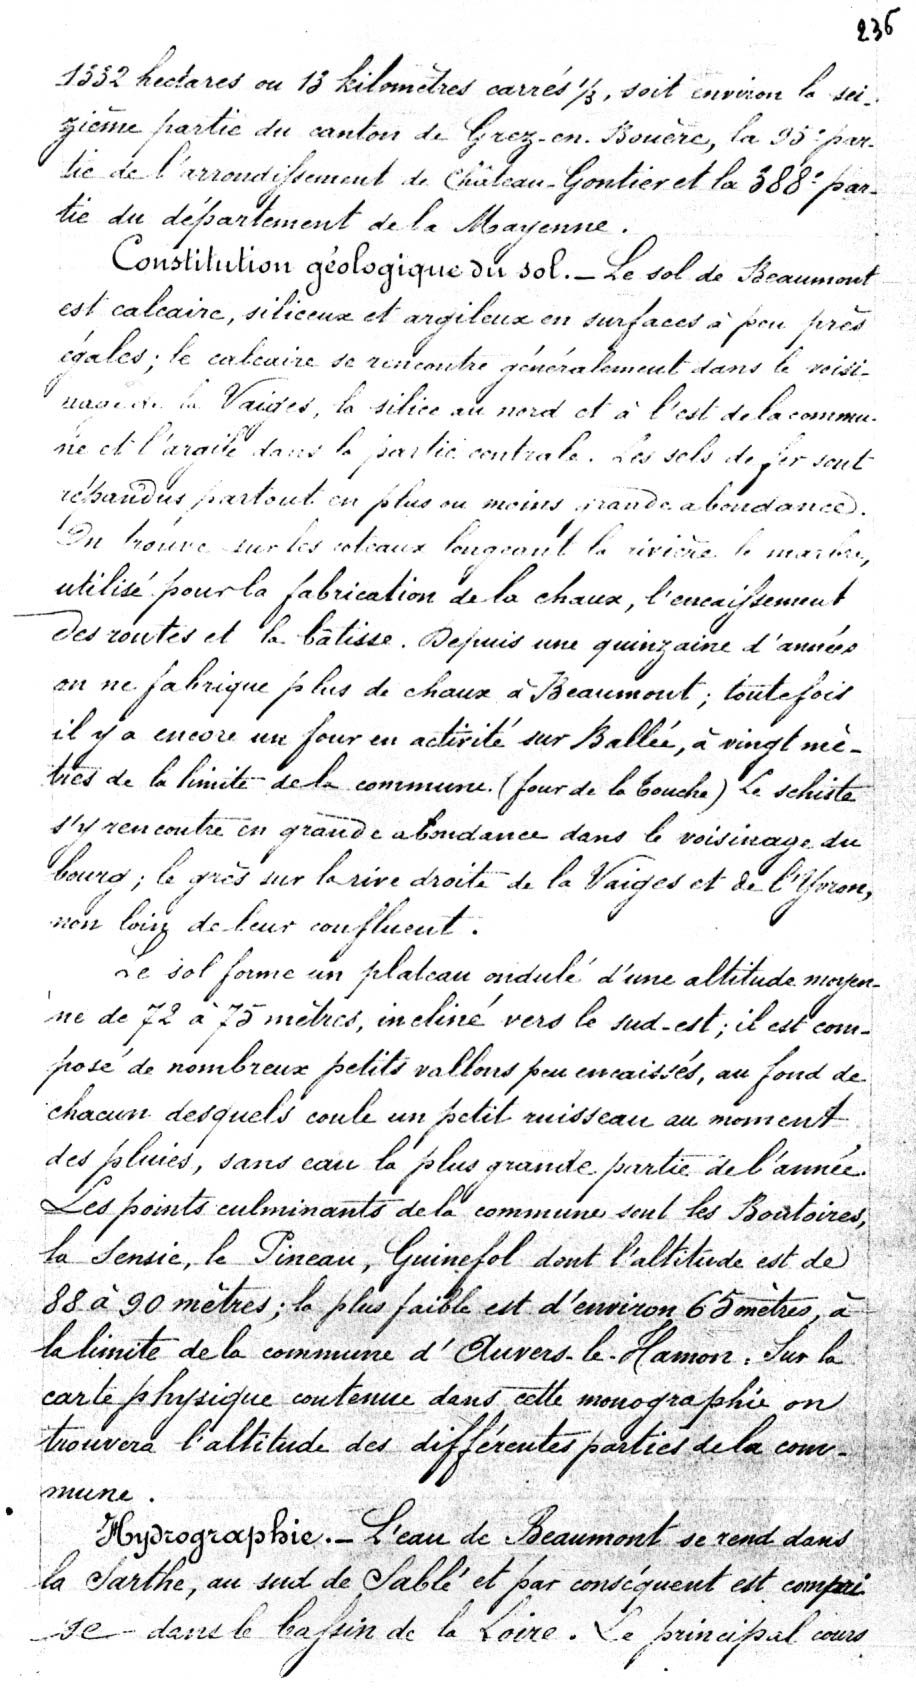 236
1332 hectares ou 13 kilomètres carrés 1/3, soit environ la sei-
zième partie du canton de Grez-en-Bouère, la 95e par-
tie de l'arrondissement de Château-Gontier et la 388e par-
tie du département de la Mayenne.
Constitution géologique du sol. — Le sol de Beaumont
est calcaire, siliceux et argileux en surfaces à peu près
égales; le calcaire se rencontre généralement dans le voisi-
nage de la Vaiges, la silice au nord et à l'est de la commu-
ne et l'argile dans la partie centrale. Les sels de fer sont
répandus partout en plus ou moins grande abondance.
On trouve sur les coteaux longeant la rivière le marbre,
utilisé pour la fabrication de la chaux, l'encaissement
des routes et la bâtisse. Depuis une quinzaine d'années
on ne fabrique plus de chaux à Beaumont; toutefois
il y a encore un four en activité sur Ballée, à vingt mè-
tres de la limite de la commune (four de la Touche) Le schiste
s'y rencontre en grande abondance dans le voisinage du
bourg; le grès sur la rive droite de la Vaiges et de l'Yvron,
non loin de leur confluent.
Le sol forme un plateau ondulé d'une altitude moyen-
ne de 72 à 75 mètres, incliné vers le sud-est; il est com-
posé de nombreux petits vallons peu encaissés, au fond de
chacun desquels coule un petit ruisseau au moment
des pluies, sans eau la plus grande partie de l'année.
Les points culminants de la commune sont les Boutoires,
la Sensie, le Pineau, Guinefol dont l'altitude est de
88 à 90 mètres; la plus faible est d'environ 65 mètres, à
la limite de la commune d'Auvers-le-Hamon. Sur la
carte physique contenue dans cette monographie on
trouvera l'altitude des différentes parties de la com-
mune.
Hydrographie. — L'eau de Beaumont se rend dans
la Sarthe, au sud de Sablé et par conséquent est compri
se dans le bassin de la Loire. Le principal cours